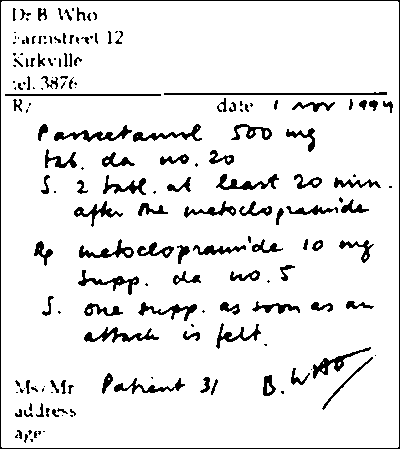 Dr B. Who
Farmstreet 12
Kirkville
tel. 3876
R/ date 1 nov 1994
Paracetamol 500 mg
tab. da no. 20
S. 2 tabl. at least 20 min.
after the metoclopramide
Rp metoclopramide 10 mg
supp. da no. 5
S. one supp. as soon as an
attack is felt.
Ms/Mr Patient 31 B. WHO
address
age: